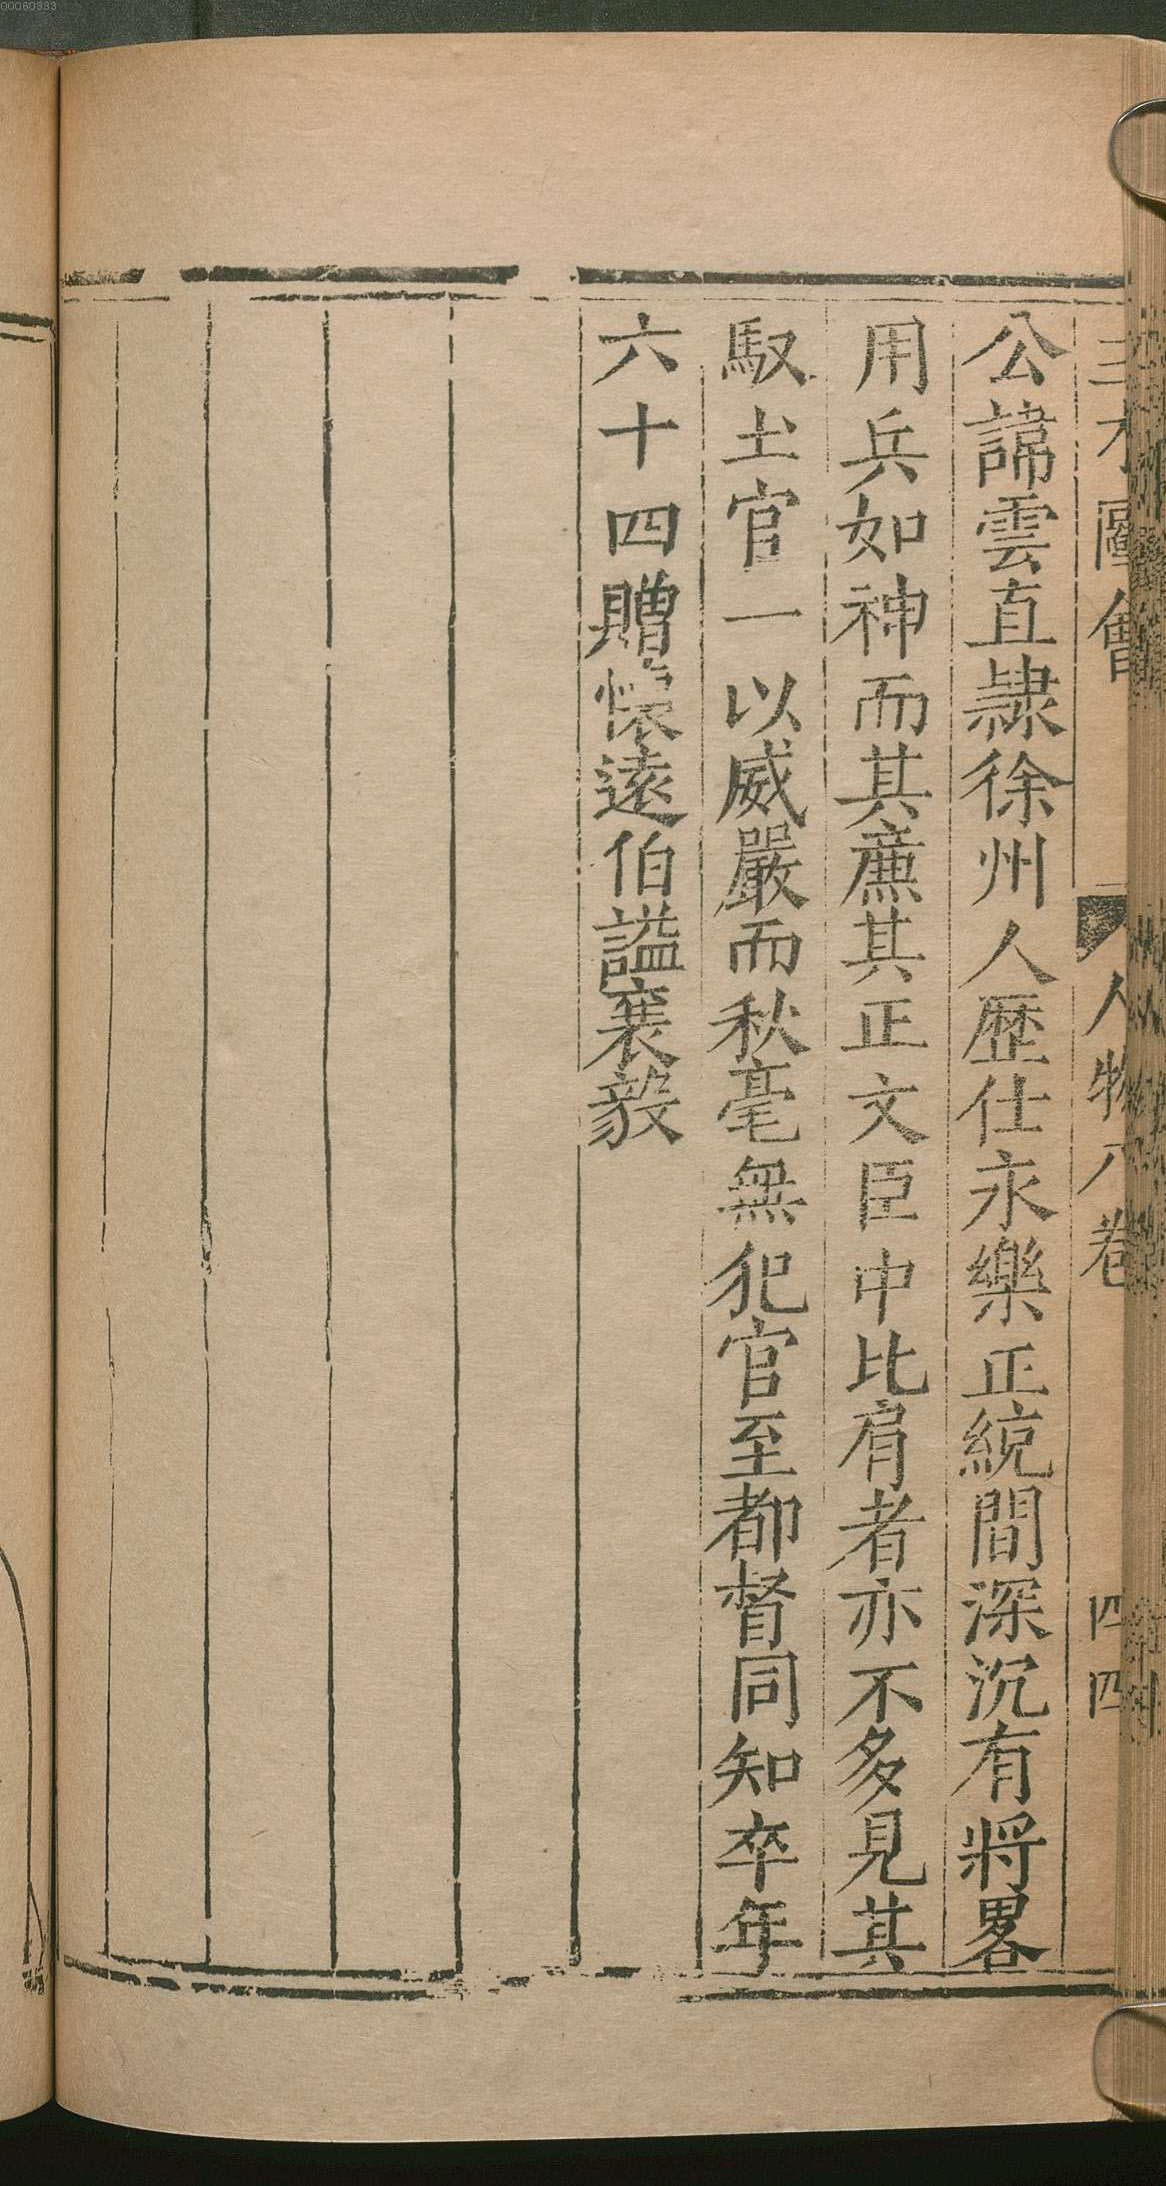 00060333
三才圖會 人物八卷 四四
公諱雲直隸徐州人歷仕永樂正統間深沉有將畧
用兵如神而其亷其正文臣中比肩者亦不多見其
馭土官一以威嚴而秋毫無犯官至都督同知卒年
六十四贈懷遠伯謚襄毅